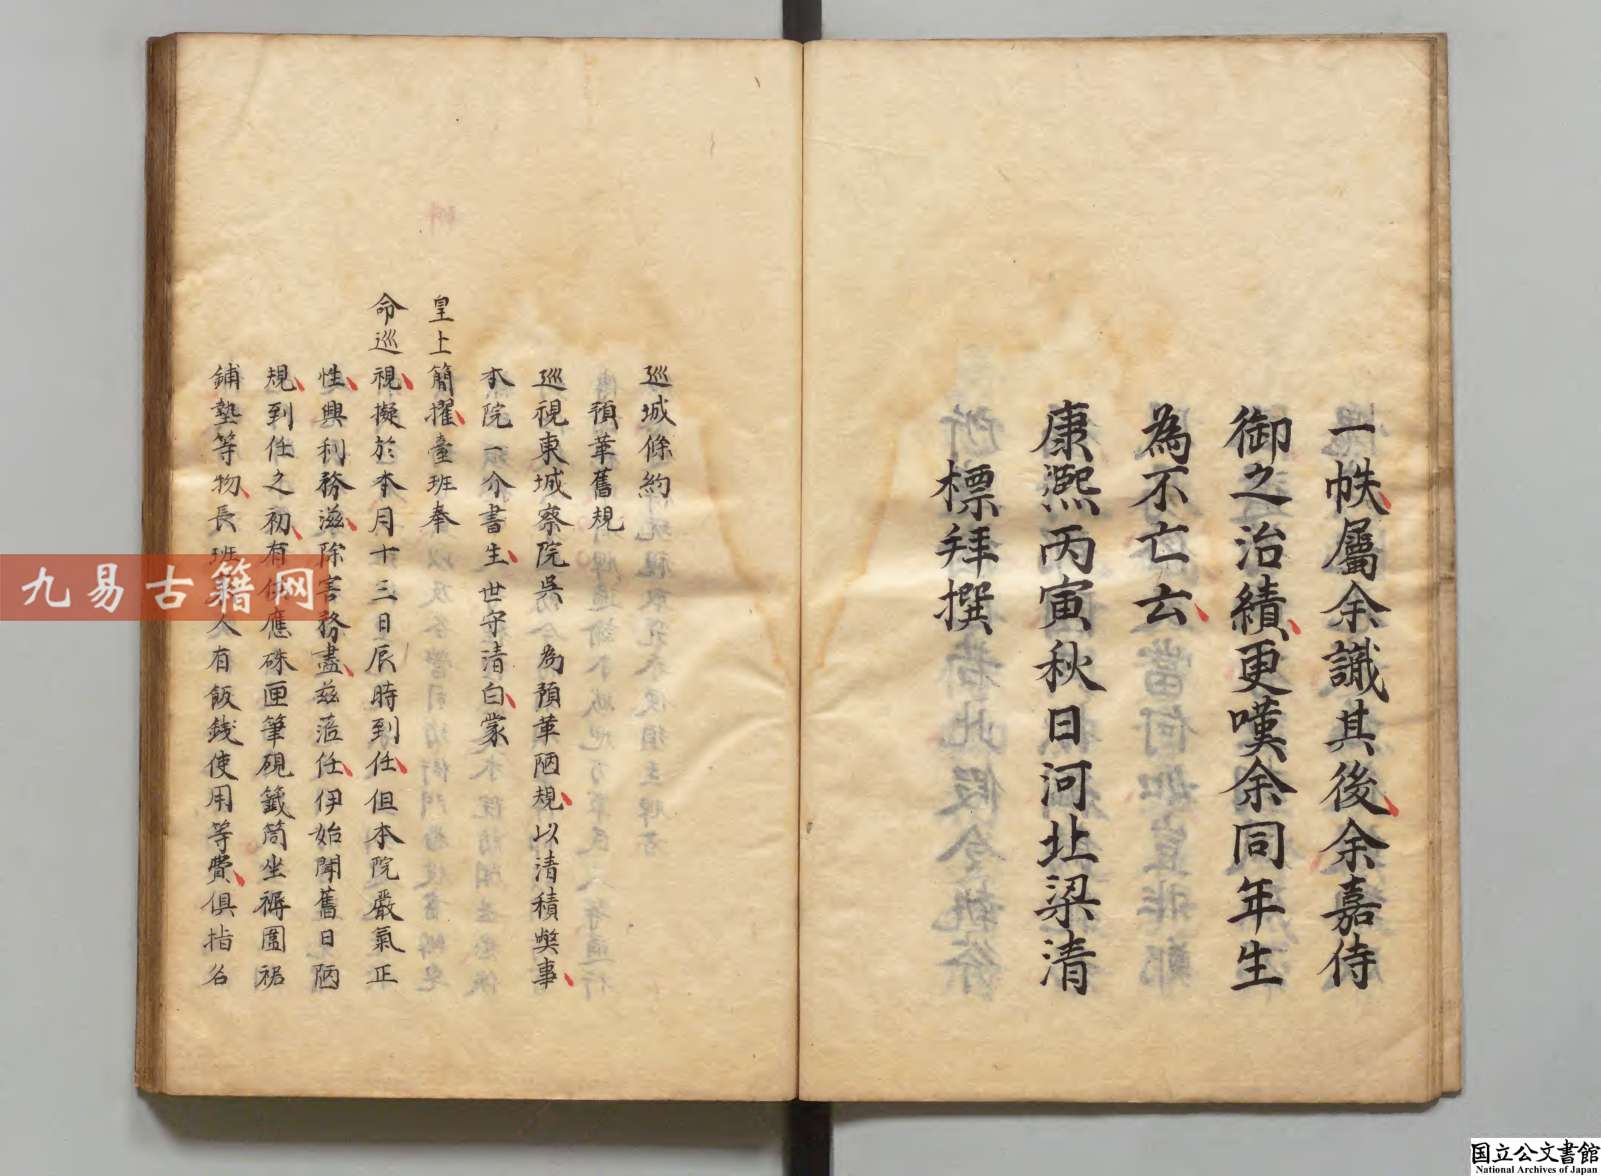 一帙屬余識其後余嘉侍
御之治績更嘆余同年生
為不亡云
康熙丙寅秋日河北梁清
標拜撰
巡城條約
預革舊規
巡視東城察院吳為預革陋規以清積獘事
本院一介書生世守清白蒙
皇上簡擢臺班奉
命巡視擬於本月十三日辰時到任但本院嚴氣正
性興利務滋除害務盡茲蒞任伊始聞舊日陋
規到任之初有供應硃匣筆硯籤筒坐褥圍裙
鋪墊等物長班人有飯錢使用等費俱指名
九易古籍网
国立公文書館
National Archives of Japan